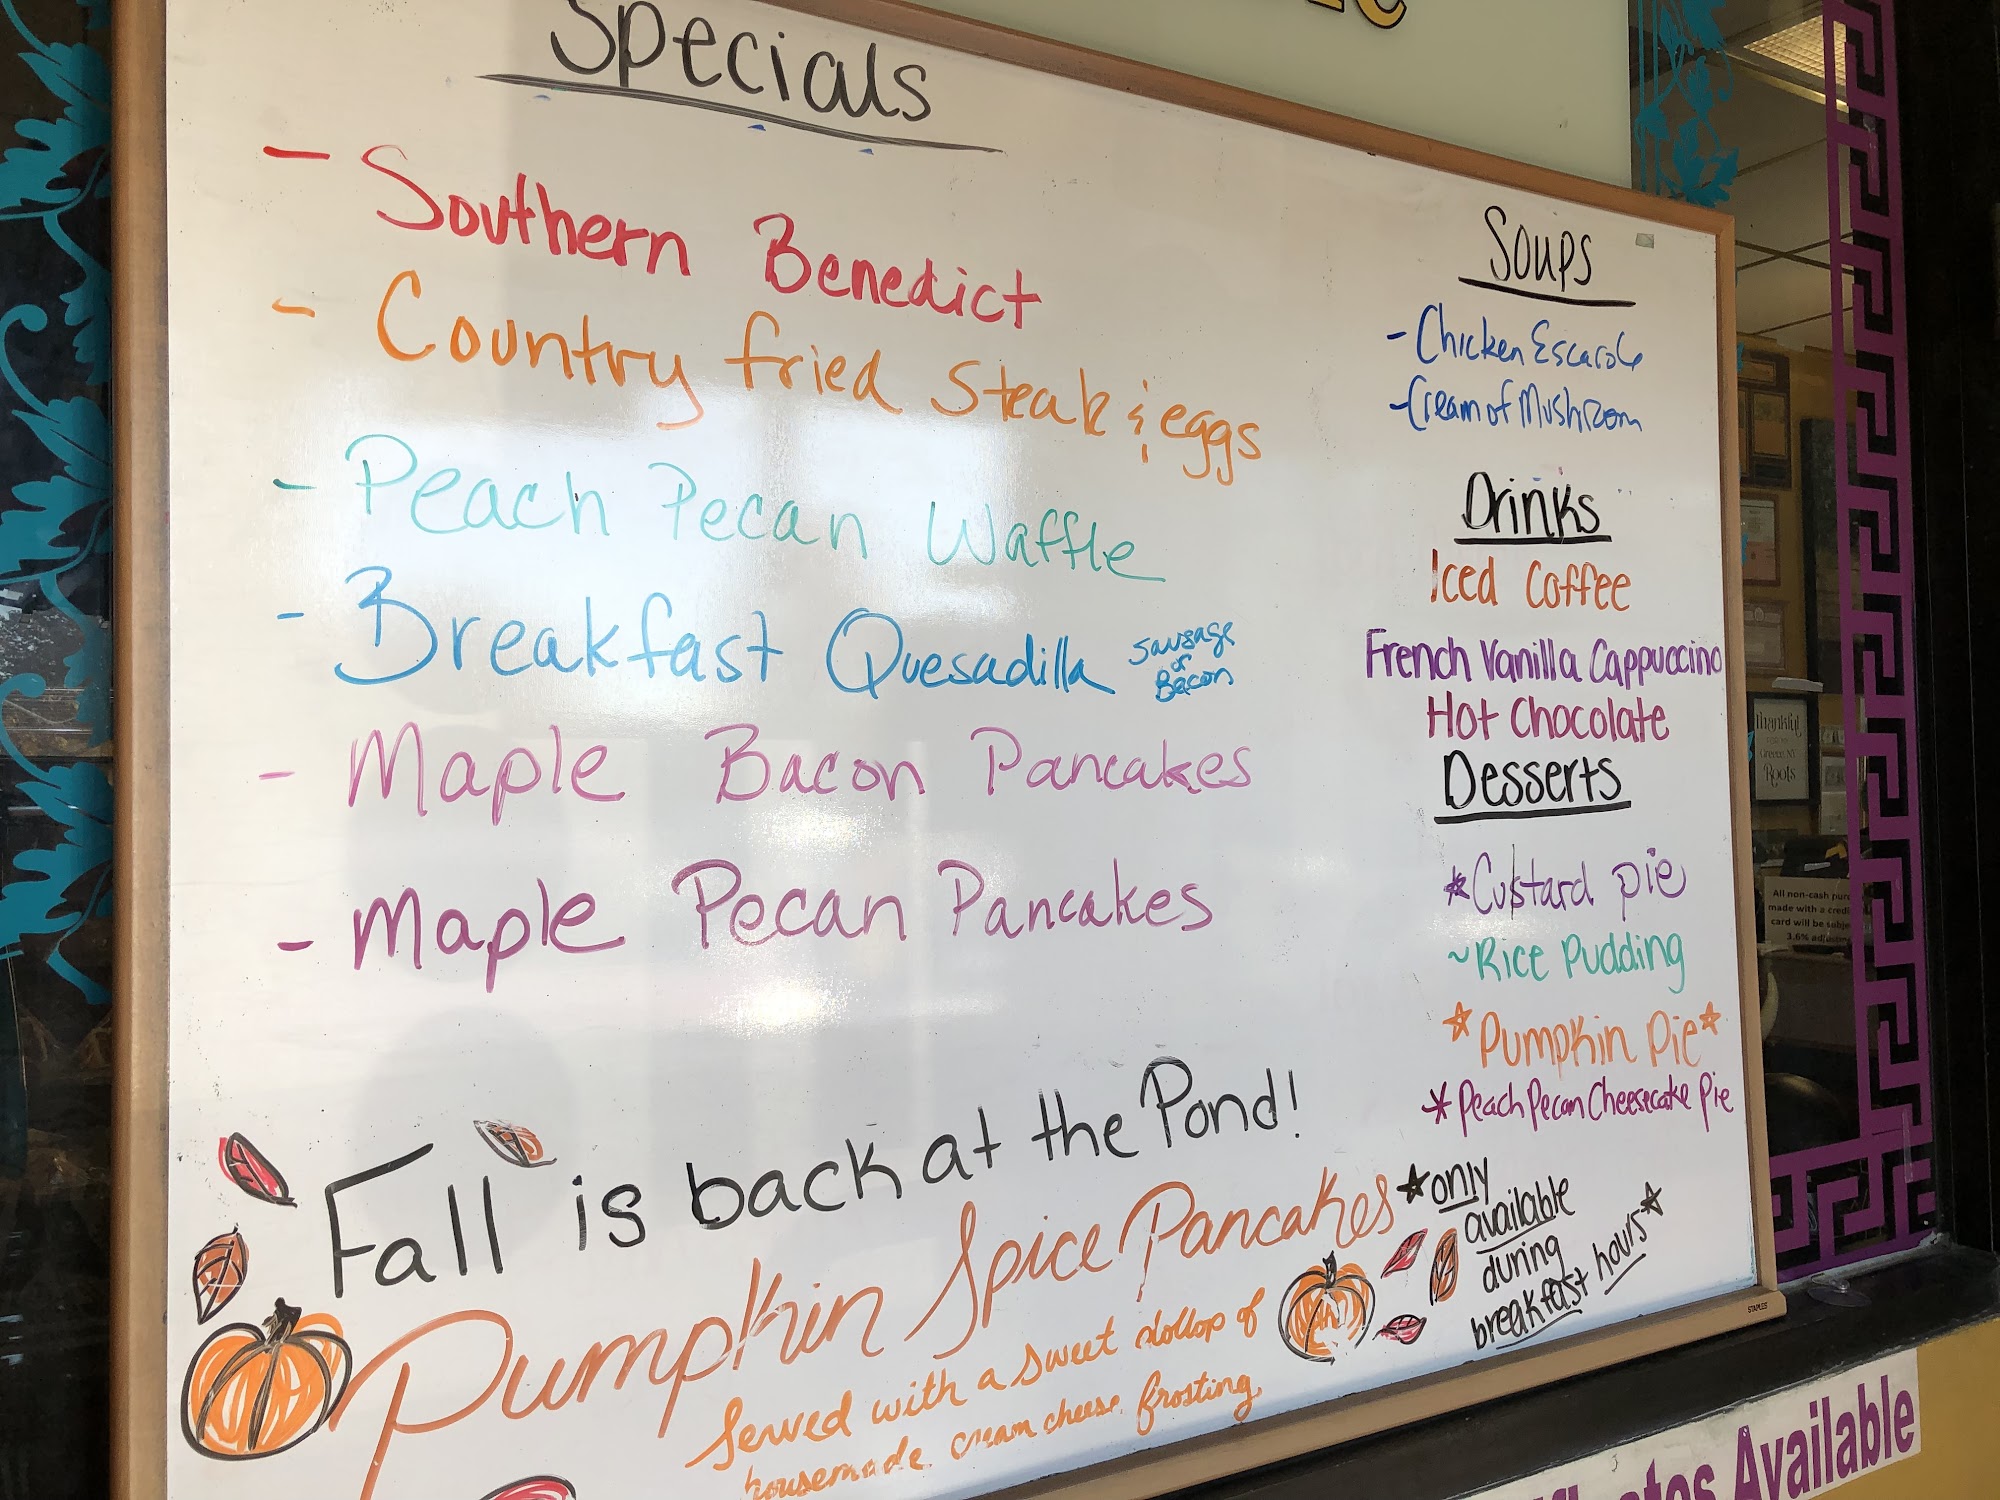 Specials
- Southern Benedict
- Country fried Steak & eggs
- Peach Pecan Waffle
- Breakfast Quesadilla sausage or Bacon
- Maple Bacon Pancakes
- Maple Pecan Pancakes
Soups
- Chicken Escarole
- Cream of Mushroom
Drinks
Iced Coffee
French Vanilla Cappuccino
Hot Chocolate
Desserts
*Custard pie
~Rice Pudding
*Pumpkin Pie*
*Peach Pecan Cheesecake Pie
Fall is back at the Pond!
Pumpkin Spice Pancakes
Served with a sweet dollop of
housemade cream cheese frosting
*only
available
during
breakfast hours*
STAPLES
Available
Thankful
Greene, NY
Roots
All non-cash
made with a
card will be
3.6%